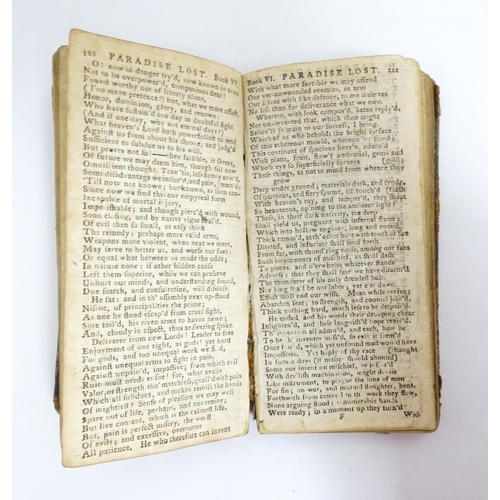 120 PARADISE LOST. Book VI.
O! now in danger try'd, now known in arms
Not to be overpower'd, companions dear!
Found worthy not of liberty alone,
(Too mean pretence!) but, what we more affect,
Honor, dominion, glory, and renown:
Who have sustain'd one day in doubtful fight
(And if one day, why not eternal days?)
What heaven's Lord hath powerfullest to send
Against us from about his throne, and judg'd
Sufficient to subdue us to his will,
But proves not so!—then fallible, it seems,
Of future we may deem him, though till now
Omniscient thought. True 'tis, less firmly arm'd,
Some disadvantage we indur'd, and pain,
'Till now not known; but, known, as soon contemn'd:
Since now we find this our empyreal form
Incapable of mortal injury,
Imperishable; and though pierc'd with wound,
Soon closing, and by native vigor heal'd.
Of evil then so small, as easy think
The remedy: perhaps more valid arms,
Weapons more violent, when next we meet,
May serve to better us, and worse our foes:
Or equal what between us made the odds
In nature none: if other hidden cause
Left them superior, while we can preserve
Unhurt our minds, and understanding sound,
Due search, and consultation, will disclose.
He sat: and in th' assembly next up-stood
Nisroc, of principalities the prime;
As one he stood escap'd from cruel fight,
Sore toil'd, his riven arms to havoc hewn;
And, cloudy in aspect, thus answering spake.
Deliverer from new Lords! Leader to free
Enjoyment of our right, as gods! yet hard
For gods, and too unequal work we find,
Against unequal arms to fight in pain,
Against unpain'd, impassive; from which evil
Ruin must needs ensue! for, what avails
Valor, or strength, tho' matchless, quell'd with pain
Which all subdues, and makes remiss the hands
Of mightiest? Sense of pleasure we may well
Spare out of life, perhaps, and not repine,
But live content, which is the calmest life.
But, pain is perfect misery, the worst
Of evils; and excessive, overturns
All patience. He who therefore can invent
Book VI. PARADISE LOST. 121
With what more forcible we may offend
Our yet unwounded enemies, or arm
Ourselves with like defence, to me deserves
No less than for deliverance what we owe.
Whereto, with look compos'd, Satan reply'd,
Not uninvented that, which thou aright
Believ'st so main to our success, I bring.
Which of us who beholds the bright surface
Of this ethereous mould, whereon we stand,
This continent of spacious heav'n, adorn'd
With plant, fruit, flow'r ambrosial, gems and gold;
Whose eye so superficially surveys
These things, as not to mind from whence they
grow
Deep under ground; materials dark, and crude,
Of spiritous, and fiery spume, till touch'd
With heaven's ray, and temper'd, they shoot
So beauteous, opening to the ambient light?
These, in their dark nativity, the deep
Shall yield us, pregnant with infernal flame;
Which into hollow engines, long and round,
Thick ramm'd, at th' other bore with touch of fire
Dilated, and infuriate shall send forth
From far, with thund'ring noise, among our foes
Such implements of mischief, as shall dash
To pieces, and o'erwhelm whatever stands
Adverse; that they shall fear we have disarm'd
The thunderer of his only dreaded bolt.
Nor long shall be our labor; yet ere dawn,
Effect shall end our wish. Mean while revive;
Abandon fear; to strength, and counsel join'd,
Think nothing hard, much less to be despair'd.
He ended, and his words their drooping chear
Inlighten'd, and their languish'd hope reviv'd.
Th' invention all admir'd, and each, how he
To be th' inventor miss'd, so easy it seem'd
Once found, which yet unfound most would have
Impossible. Yet haply of thy race (thought
In future days (if malice should abound)
Some one intent on mischief, or inspir'd
With devilish machination, might devise
Like instrument, to plague the sons of men
For sin, on war, and mutual slaughter, bent.
Forthwith from council to the work they flew,
None arguing stood; innumerable hands
Were ready; in a moment up they turn'd
F Wide